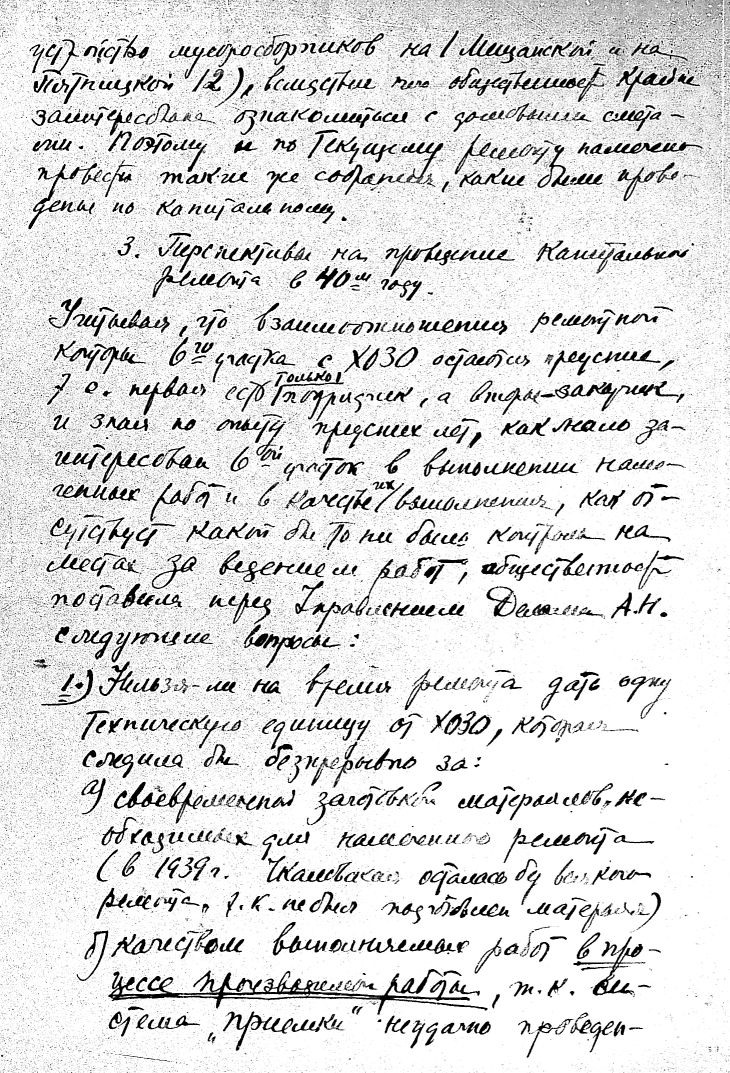 устройство мусоросборников на 1 Мещанской и на
Пятницкой 12), вследствие чего общественность крайне
заинтересована ознакомиться с домовыми смета-
ми. Поэтому и по Текущему ремонту намечено
провести такие же собрания, какие были прове-
дены по капитальному.
3. Перспективы на проведение Капитальной
ремонта в 40ом году.
Учитывая, что взаимоотношения ремонтной
конторы 6го участка с ХОЗО остаются прежние,
т.е. первая есть только подрядчик, а вторые-заказчик,
и зная по опыту прежних лет, как мало за-
интересован 6ой участок в выполнении наме-
ченных работ и в качестве их выполнения, как от-
сутствует какой бы то ни было контроль на
местах за ведением работ, общественность
поставила перед Управлением Дома А.Н.
следующие вопросы:
1.) Нельзя-ли на время ремонта дать одну
Техническую единицу от ХОЗО, которая
следила бы безпрерывно за:
а) своевременной заготовкой материалов, не-
обходимых для намеченного ремонта
(в 1939 г. Чкаловская осталась без всякого
ремонта, т.к. не был подготовлен материал)
б) качеством выполняемых работ в про-
цессе производимой работы, т.к. си-
стема „приемки" неудачно проведен-